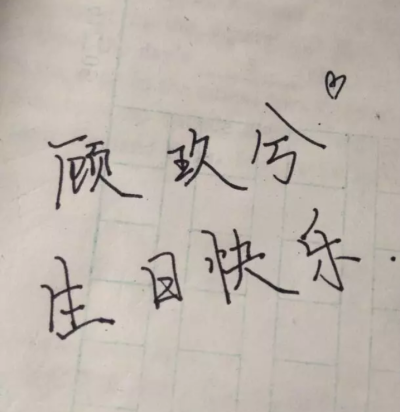 顾玖兮♡
生日快乐.